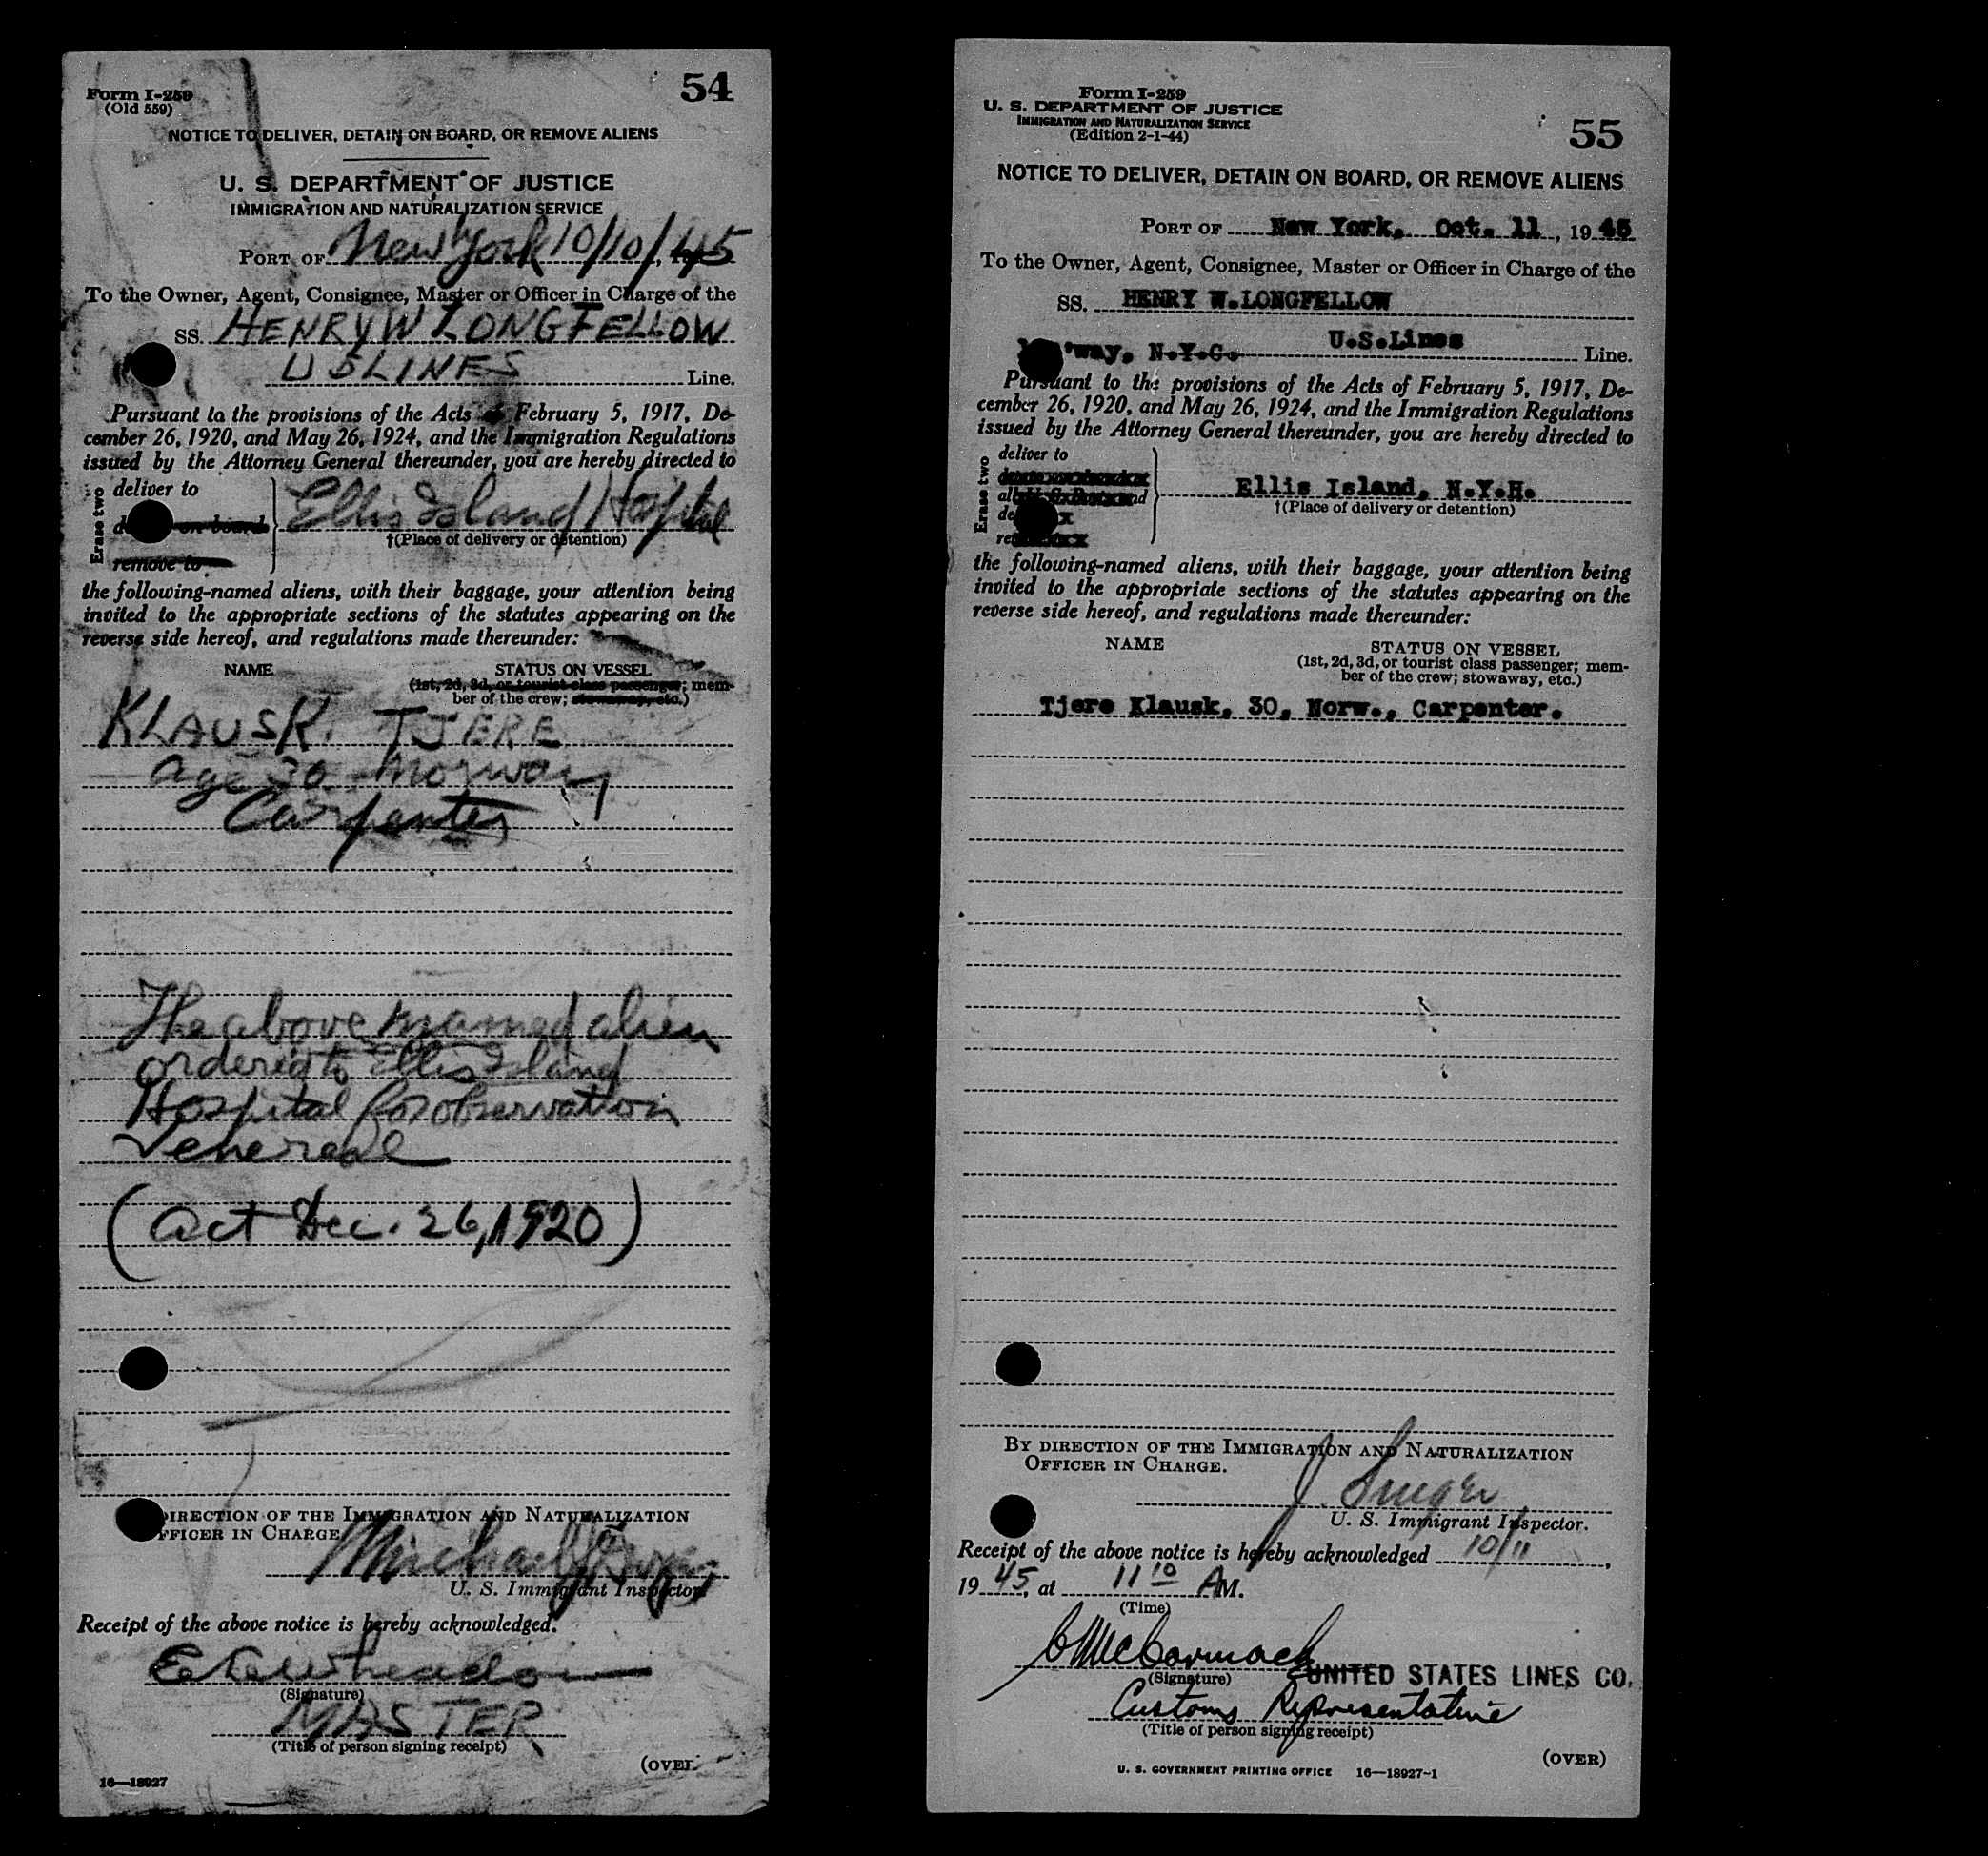 54
Form I-259
(Old 559)
NOTICE TO DELIVER, DETAIN ON BOARD, OR REMOVE ALIENS
U. S. DEPARTMENT OF JUSTICE
IMMIGRATION AND NATURALIZATION SERVICE
PORT OF New York 10/10/, 45
To the Owner, Agent, Consignee, Master or Officer in Charge of the
SS. HENRY W LONGFELLOW
US LINES Line.
Pursuant to the provisions of the Acts February 5, 1917, De-
cember 26, 1920, and May 26, 1924, and the Immigration Regulations
issued by the Attorney General thereunder, you are hereby directed to
Erase two
deliver to
on board
remove to
Ellis Island Hospital
†(Place of delivery or detention)
the following-named aliens, with their baggage, your attention being
invited to the appropriate sections of the statutes appearing on the
reverse side hereof, and regulations made thereunder:
NAME STATUS ON VESSEL
(1st, 2d, 3d, or tourist class passenger; mem-
ber of the crew; stowaway, etc.)
KLAUSK. TJERE
age 30 Norway
Carpenter
The above named alien
ordered to Ellis Island
Hospital for observation
Venereal
(Act Dec. 26, 1920)
DIRECTION OF THE IMMIGRATION AND NATURALIZATION
OFFICER IN CHARGE
Michael
U. S. Immigrant Inspector
Receipt of the above notice is hereby acknowledged.
(Signature)
MASTER
(Title of person signing receipt)
(OVER
16—18927
Form I-259
U. S. DEPARTMENT OF JUSTICE
IMMIGRATION AND NATURALIZATION SERVICE
(Edition 2-1-44)
55
NOTICE TO DELIVER, DETAIN ON BOARD, OR REMOVE ALIENS
PORT OF New York, Oct. 11, 19 45
To the Owner, Agent, Consignee, Master or Officer in Charge of the
SS. HENRY W.LONGFELLOW
'way, N.Y.C. U.S.Lines Line.
Pursuant to the provisions of the Acts of February 5, 1917, De-
cember 26, 1920, and May 26, 1924, and the Immigration Regulations
issued by the Attorney General thereunder, you are hereby directed to
Erase two
deliver to
Ellis Island, N.Y.H.
†(Place of delivery or detention)
the following-named aliens, with their baggage, your attention being
invited to the appropriate sections of the statutes appearing on the
reverse side hereof, and regulations made thereunder:
NAME STATUS ON VESSEL
(1st, 2d, 3d, or tourist class passenger; mem-
ber of the crew; stowaway, etc.)
Tjere Klausk, 30, Norw., Carpenter.
BY DIRECTION OF THE IMMIGRATION AND NATURALIZATION
OFFICER IN CHARGE.
J. Singer
U. S. Immigrant Inspector.
Receipt of the above notice is hereby acknowledged 10/11,
19 45, at 11 10 AM.
(Time)
McCormack UNITED STATES LINES CO.
(Signature)
Customs Representative
(Title of person signing receipt)
(OVER)
U. S. GOVERNMENT PRINTING OFFICE 16—18927-1